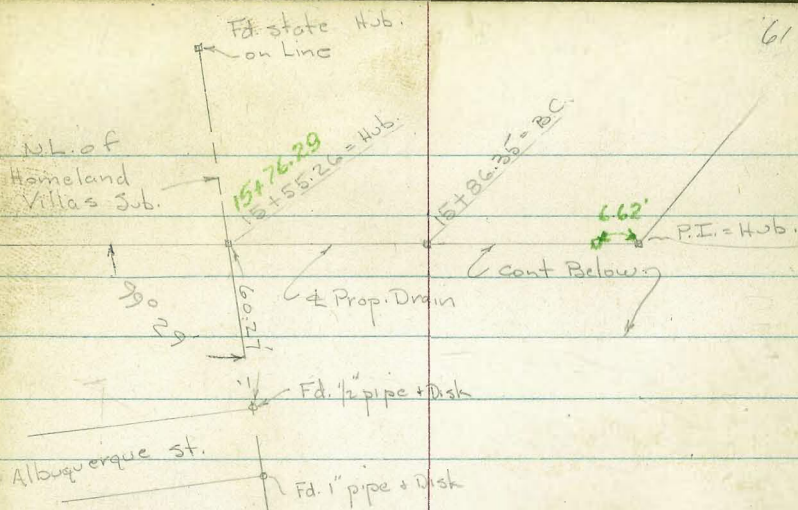 61
Fd. state Hub.
on Line
N.L. of
Homeland
Villas Sub.
15+76.29
15+55.26 = Hub.
15+86.35 = B.C.
6.62'
P.I. = Hub.
℄ Prop. Drain
Cont Below.
60.27'
Fd. 1/2" pipe + Disk
Albuquerque st.
Fd. 1" pipe + Disk